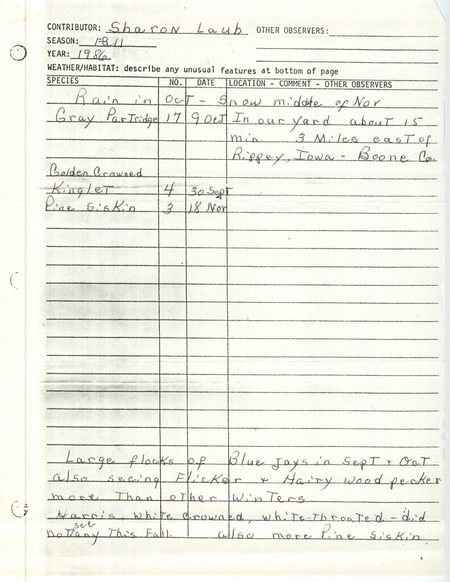 CONTRIBUTOR: Sharon Laub OTHER OBSERVERS:
SEASON: Fall
YEAR: 1986
WEATHER/HABITAT: describe any unusual features at bottom of page
SPECIES NO. DATE LOCATION - COMMENT - OTHER OBSERVERS
Rain in Oct - Snow middle of Nov
Gray Partridge 17 9 Oct In our yard about 15
min 3 Miles east of
Rippey, Iowa - Boone Co.
Golden Crowned
Kinglet 4 30 Sept
Pine Siskin 3 18 Nov
Large flocks of Blue Jays in Sept + Oct
also seeing Flicker + Hairy wood pecker
more Than other Winters
Harris, White Crowned, white-throated - did
not see any This Fall. also more Pine Siskin